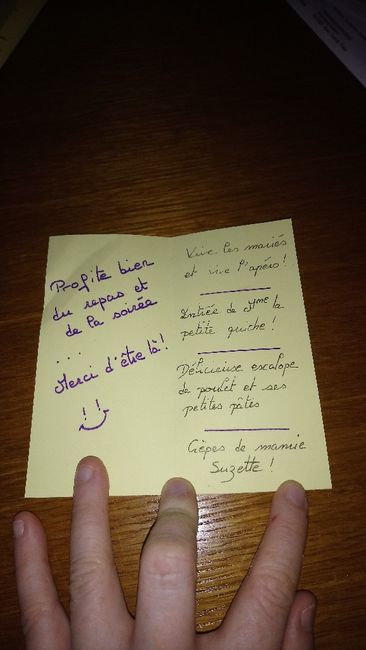 Profite bien
du repas et
de la soirée
....
Merci d'être là!
Vive les mariés
et vive l'apéro!
Entrée de Mme la
petite quiche!
Délicieuse escalope
de poulet et ses
petites pâtes
Cièpes de mamie
Suzette!